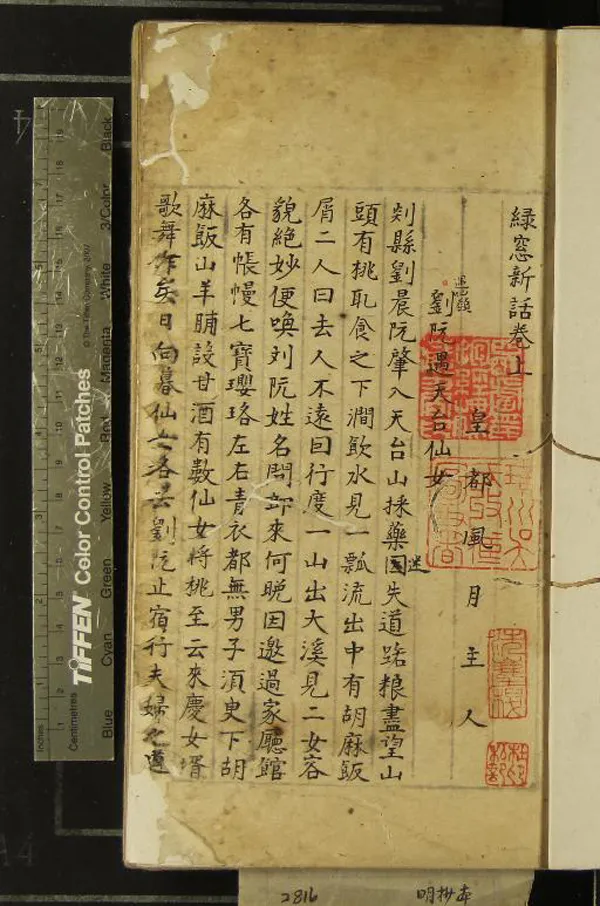 緑窓新話卷上
皇都風月主人
劉阮遇天台仙女
剡縣劉晨阮肇入天台山採藥迷失道路粮盡望山
頭有桃取食之下澗飲水見一瓢流出中有胡麻飯
屑二人曰去人不遠因行度一山出大溪見二女容
貌絶妙便喚刘阮姓名問郎來何晚因邀過家廳館
各有帳幔七寶瓔珞左右青衣都無男子須臾下胡
麻飯山羊脯設甘酒有數仙女將桃至云來慶女壻
歌舞作矣日向暮仙女各去劉阮止宿行夫婦之道
2816
明抄本
Inches
Centimetres
TIFFEN Color Control Patches
© The Tiffen Company, 2007
Blue
Cyan
Green
Yellow
Red
Magenta
White
3/Color
Black